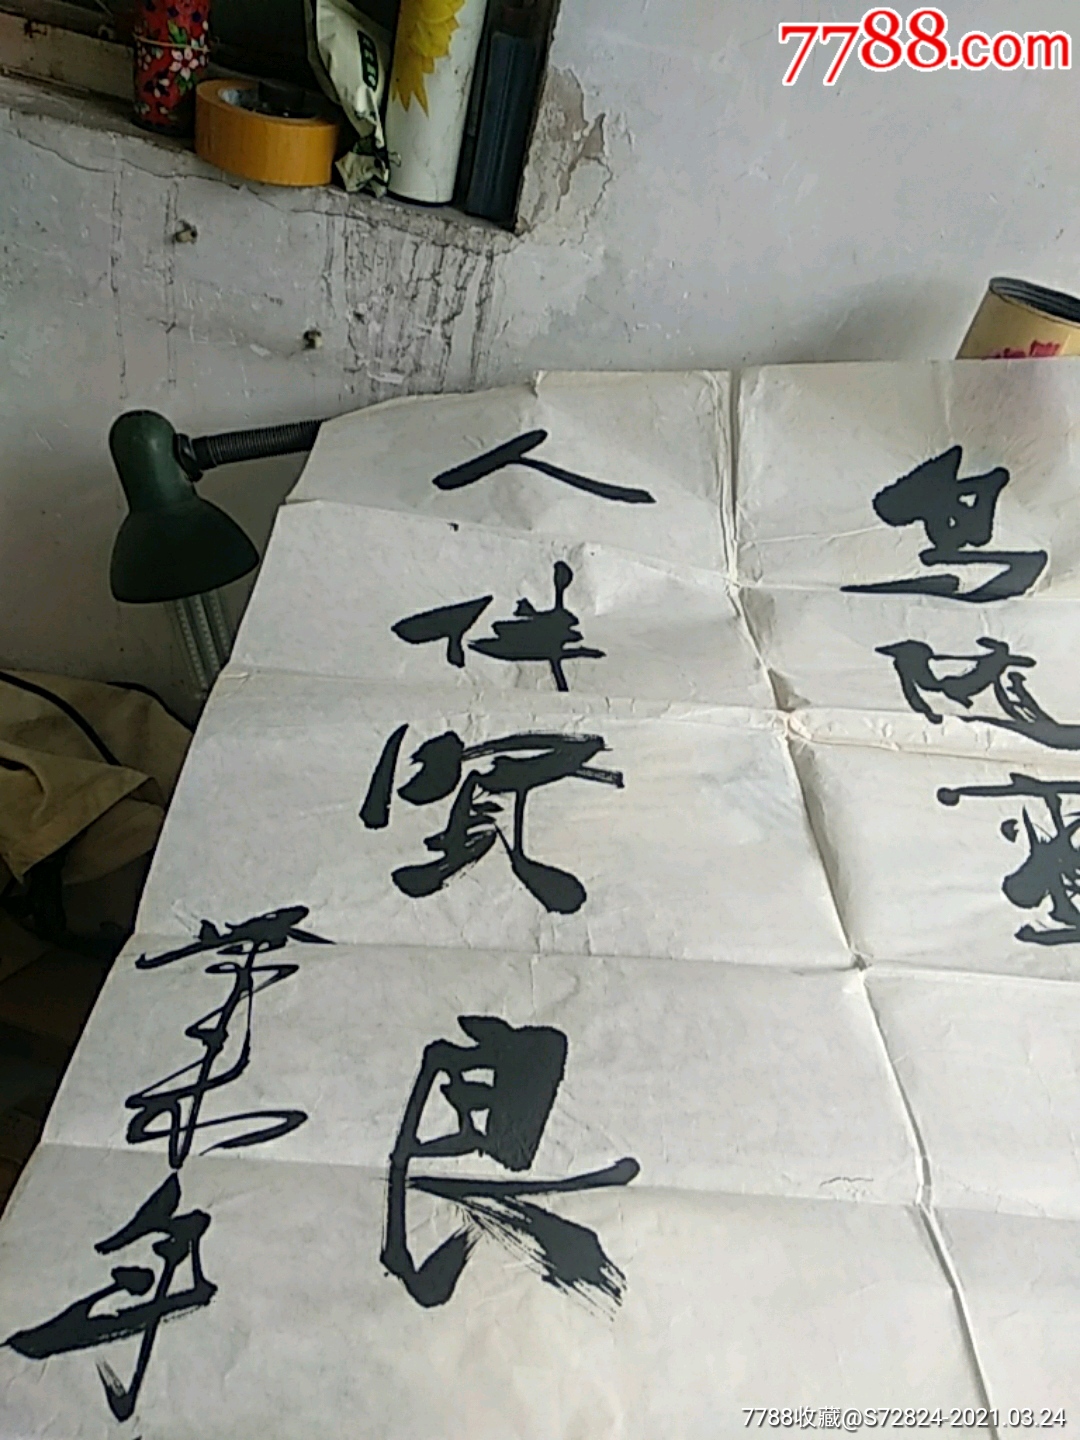 7788.com
鸟随
人伴贤良
未年
7788收藏@S72824-2021.03.24